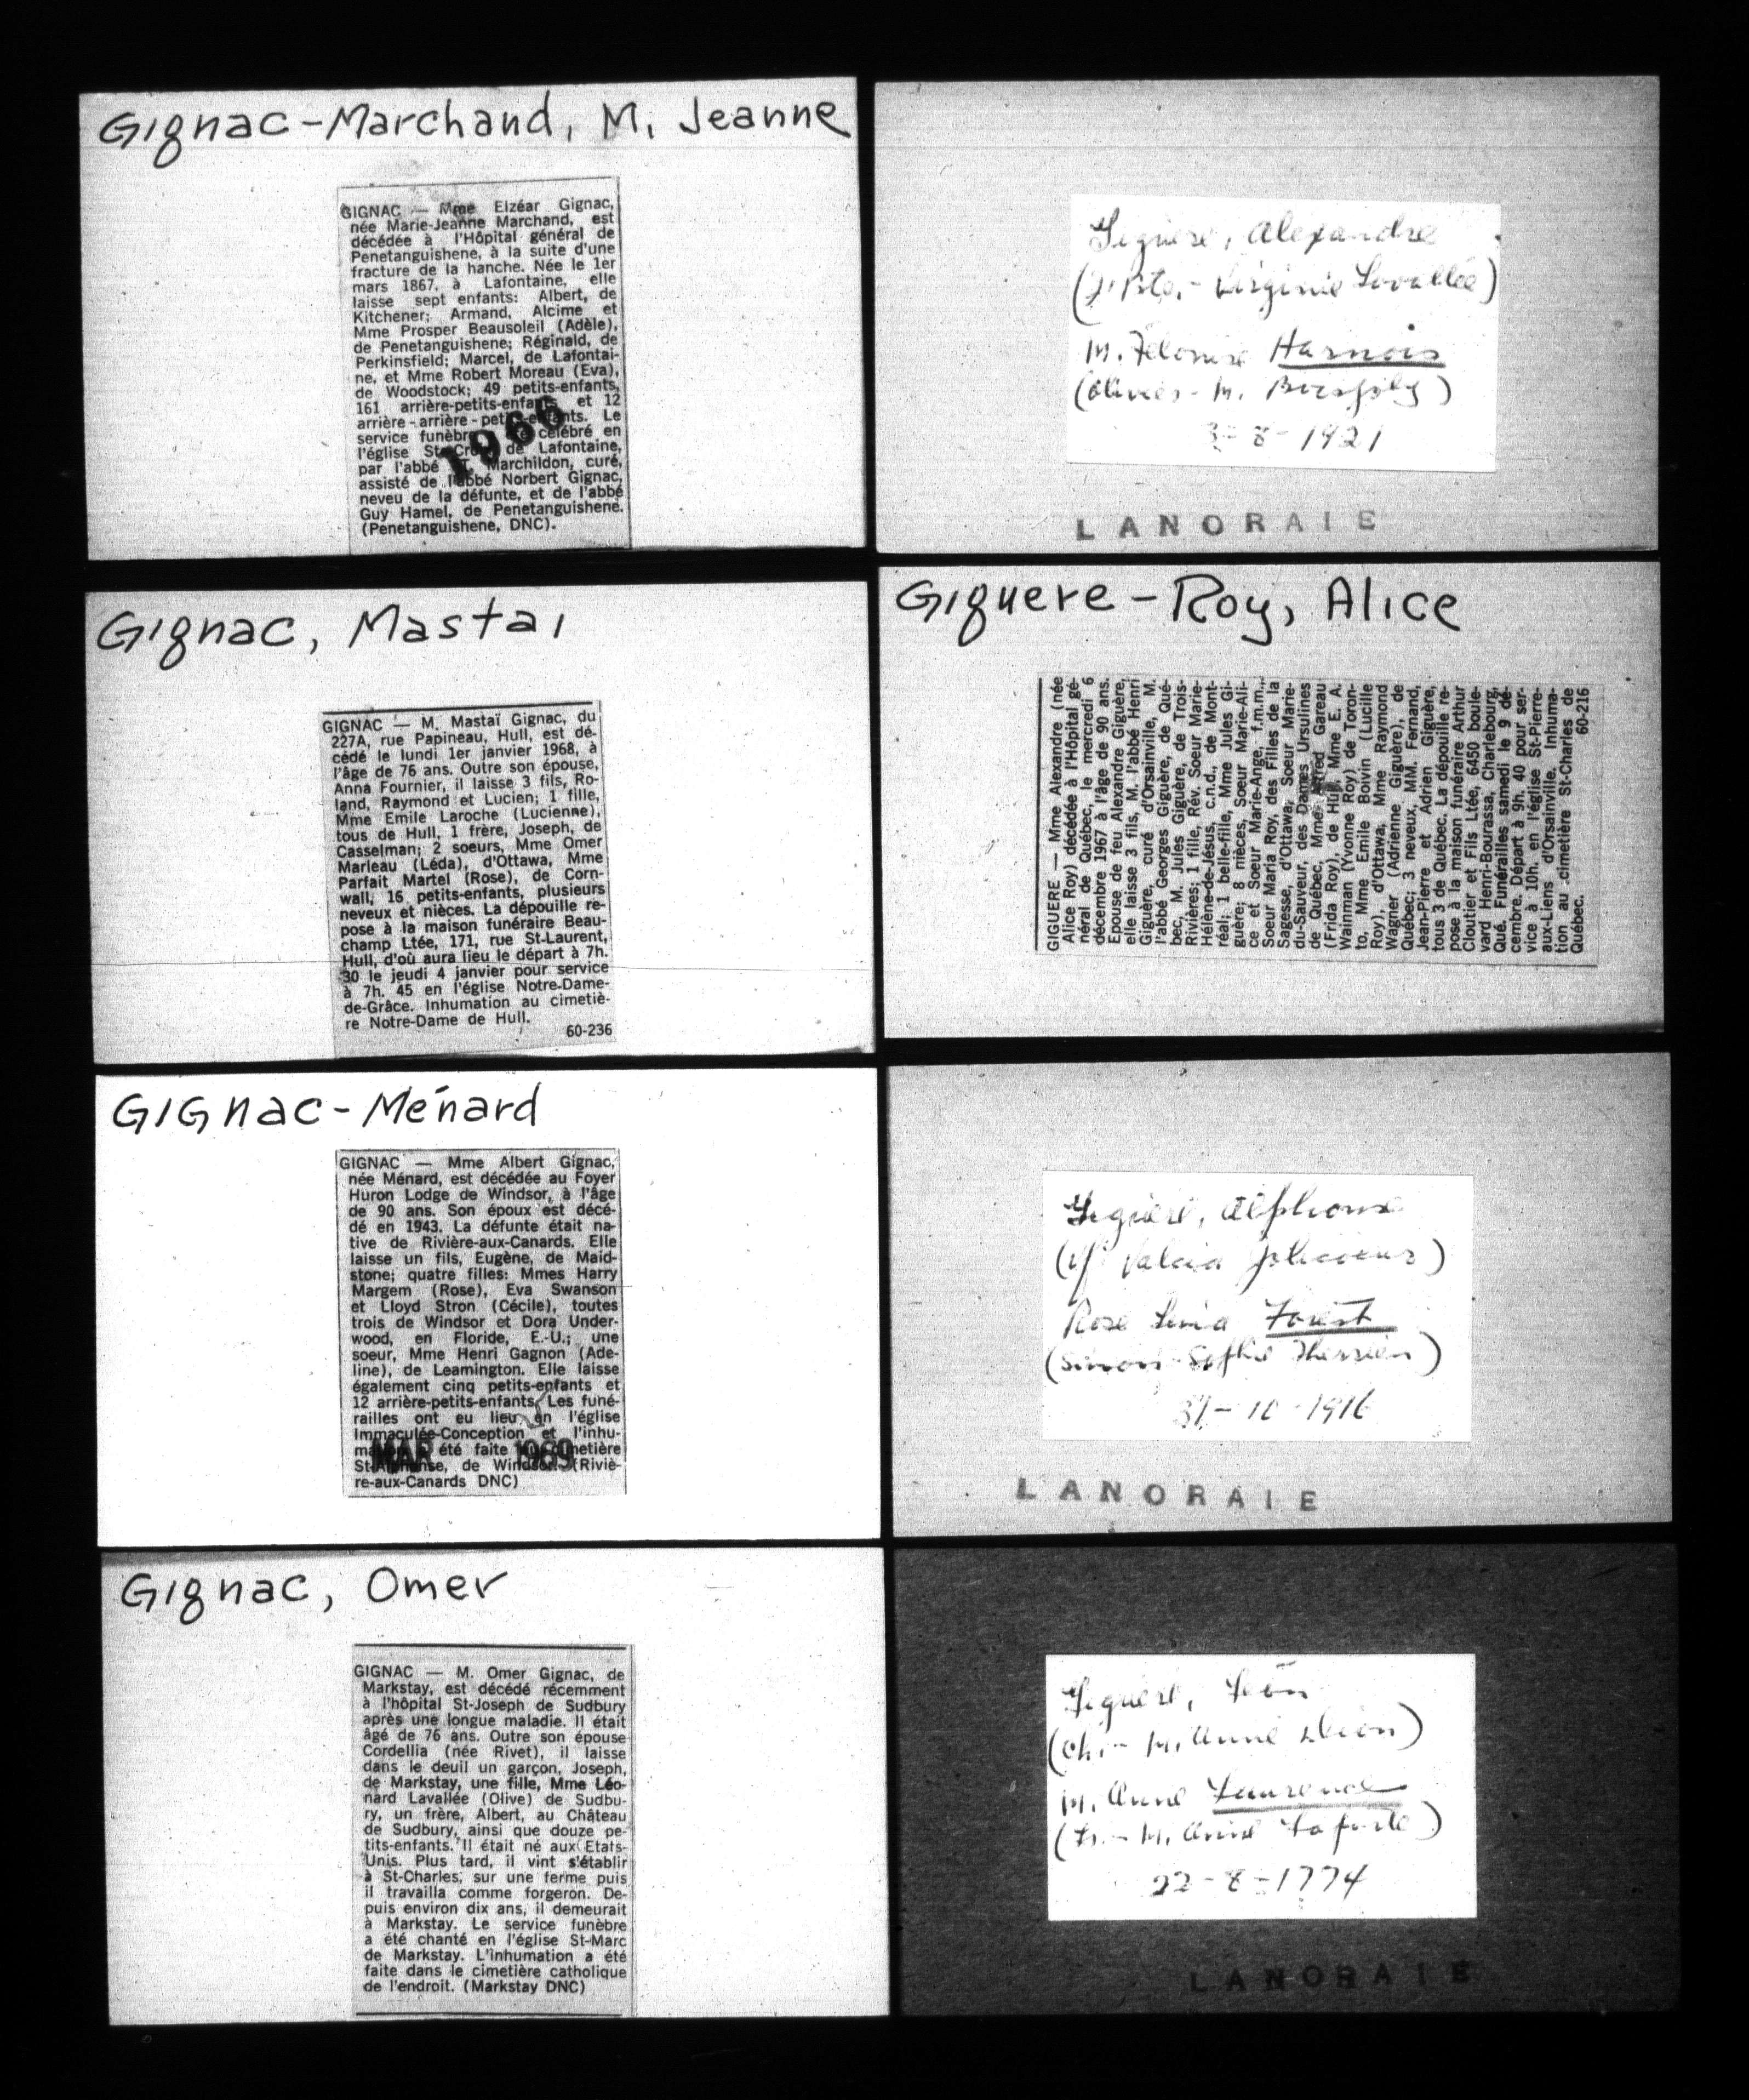 Gignac-Marchand, M. Jeanne
GIGNAC — Mme Elzéar Gignac,
née Marie-Jeanne Marchand, est
décédée à l'Hôpital général de
Penetanguishene, à la suite d'une
fracture de la hanche. Née le 1er
mars 1867, à Lafontaine, elle
laisse sept enfants: Albert, de
Kitchener; Armand, Alcime et
Mme Prosper Beausoleil (Adèle),
de Penetanguishene; Réginald, de
Perkinsfield; Marcel, de Lafontai-
ne, et Mme Robert Moreau (Eva),
de Woodstock; 49 petits-enfants,
161 arrière-petits-enfants et 12
arrière-arrière-petits-enfants. Le
service funèbre célébré en
l'église Ste-Croix de Lafontaine,
par l'abbé Marchildon, curé,
assisté de l'abbé Norbert Gignac,
neveu de la défunte, et de l'abbé
Guy Hamel, de Penetanguishene.
(Penetanguishene, DNC).
1966
Gignac, Mastai
GIGNAC — M. Mastaï Gignac, du
227A, rue Papineau, Hull, est dé-
cédé le lundi 1er janvier 1968, à
l'âge de 76 ans. Outre son épouse,
Anna Fournier, il laisse 3 fils, Ro-
land, Raymond et Lucien; 1 fille,
Mme Emile Laroche (Lucienne),
tous de Hull, 1 frère, Joseph, de
Casselman; 2 soeurs, Mme Omer
Marleau (Léda), d'Ottawa, Mme
Parfait Martel (Rose), de Corn-
wall, 16 petits-enfants, plusieurs
neveux et nièces. La dépouille re-
pose à la maison funéraire Beau-
champ Ltée, 171, rue St-Laurent,
Hull, d'où aura lieu le départ à 7h.
30 le jeudi 4 janvier pour service
à 7h. 45 en l'église Notre-Dame-
de-Grâce. Inhumation au cimetiè-
re Notre-Dame de Hull.
60-236
GIGnac-Ménard
GIGNAC — Mme Albert Gignac,
née Ménard, est décédée au Foyer
Huron Lodge de Windsor, à l'âge
de 90 ans. Son époux est décé-
dé en 1943. La défunte était na-
tive de Rivière-aux-Canards. Elle
laisse un fils, Eugène, de Maid-
stone; quatre filles: Mmes Harry
Margem (Rose), Eva Swanson
et Lloyd Stron (Cécile), toutes
trois de Windsor et Dora Under-
wood, en Floride, E.-U.; une
soeur, Mme Henri Gagnon (Ade-
line), de Leamington. Elle laisse
également cinq petits-enfants et
12 arrière-petits-enfants. Les funé-
railles ont eu lieu en l'église
Immaculée-Conception et l'inhu-
mation a été faite au cimetière
St-Alphonse, de Windsor. (Riviè-
re-aux-Canards DNC)
MAR 1969
Gignac, Omer
GIGNAC — M. Omer Gignac, de
Markstay, est décédé récemment
à l'hôpital St-Joseph de Sudbury
après une longue maladie. Il était
âgé de 76 ans. Outre son épouse
Cordellia (née Rivet), il laisse
dans le deuil un garçon, Joseph,
de Markstay, une fille, Mme Léo-
nard Lavallée (Olive) de Sudbu-
ry, un frère, Albert, au Château
de Sudbury, ainsi que douze pe-
tits-enfants. Il était né aux Etats-
Unis. Plus tard, il vint s'établir
à St-Charles, sur une ferme puis
il travailla comme forgeron. De-
puis environ dix ans, il demeurait
à Markstay. Le service funèbre
a été chanté en l'église St-Marc
de Markstay. L'inhumation a été
faite dans le cimetière catholique
de l'endroit. (Markstay DNC)
Giguère, Alexandre
(J. Bte.- Virginie Lavallée)
M. Harnois
(Olivier - M. )
3-8-1921
LANORAIE
Giguere-Roy, Alice
GIGUERE — Mme Alexandre (née
Alice Roy) décédée à l'Hôpital gé-
néral de Québec, le mercredi 6
décembre 1967 à l'âge de 90 ans.
Epouse de feu Alexandre Giguère,
elle laisse 3 fils, M. l'abbé Henri
Giguère, curé d'Orsainville, M.
l'abbé Georges Giguère, de Qué-
bec, M. Jules Giguère, de Trois-
Rivières; 1 fille, Rév. Soeur Marie-
Hélène-de-Jésus, c.n.d., de Mont-
réal; 1 belle-fille, Mme Jules Gi-
guère; 8 nièces, Soeur Marie-Ali-
ce et Soeur Marie-Ange, f.m.m.,
Soeur Maria Roy, des Filles de la
Sagesse, d'Ottawa, Soeur Marie-
du-Sauveur, des Dames Ursulines
de Québec, Mme Alfred Gareau
(Frida Roy), de Hull, Mme E. A.
Wainman (Yvonne Roy) de Toron-
to, Mme Emile Boivin (Lucille
Roy), d'Ottawa, Mme Raymond
Wagner (Adrienne Giguère), de
Québec; 3 neveux, MM. Fernand,
Jean-Pierre et Adrien Giguère,
tous 3 de Québec. La dépouille re-
pose à la maison funéraire Arthur
Cloutier et Fils Ltée, 6450 boule-
vard Henri-Bourassa, Charlebourg,
Qué. Funérailles samedi le 9 dé-
cembre. Départ à 9h. 40 pour ser-
vice à 10h. en l'église St-Pierre-
aux-Liens d'Orsainville. Inhuma-
tion au cimetière St-Charles de
Québec.
60-216
Giguère, Alphonse
Rose Forest
(Simon - Sophie Therrien)
31-10-1916
LANORAIE
Giguère, Léon
(Ch.- M. Anne Dion)
M. Anne Laurence
(Fr.- M. Anne Laforte)
22-8-1774
LANORAIE